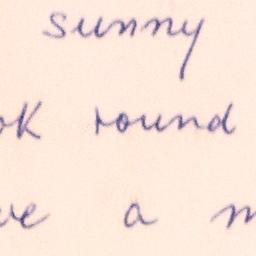 sunny
ok round
ve a m